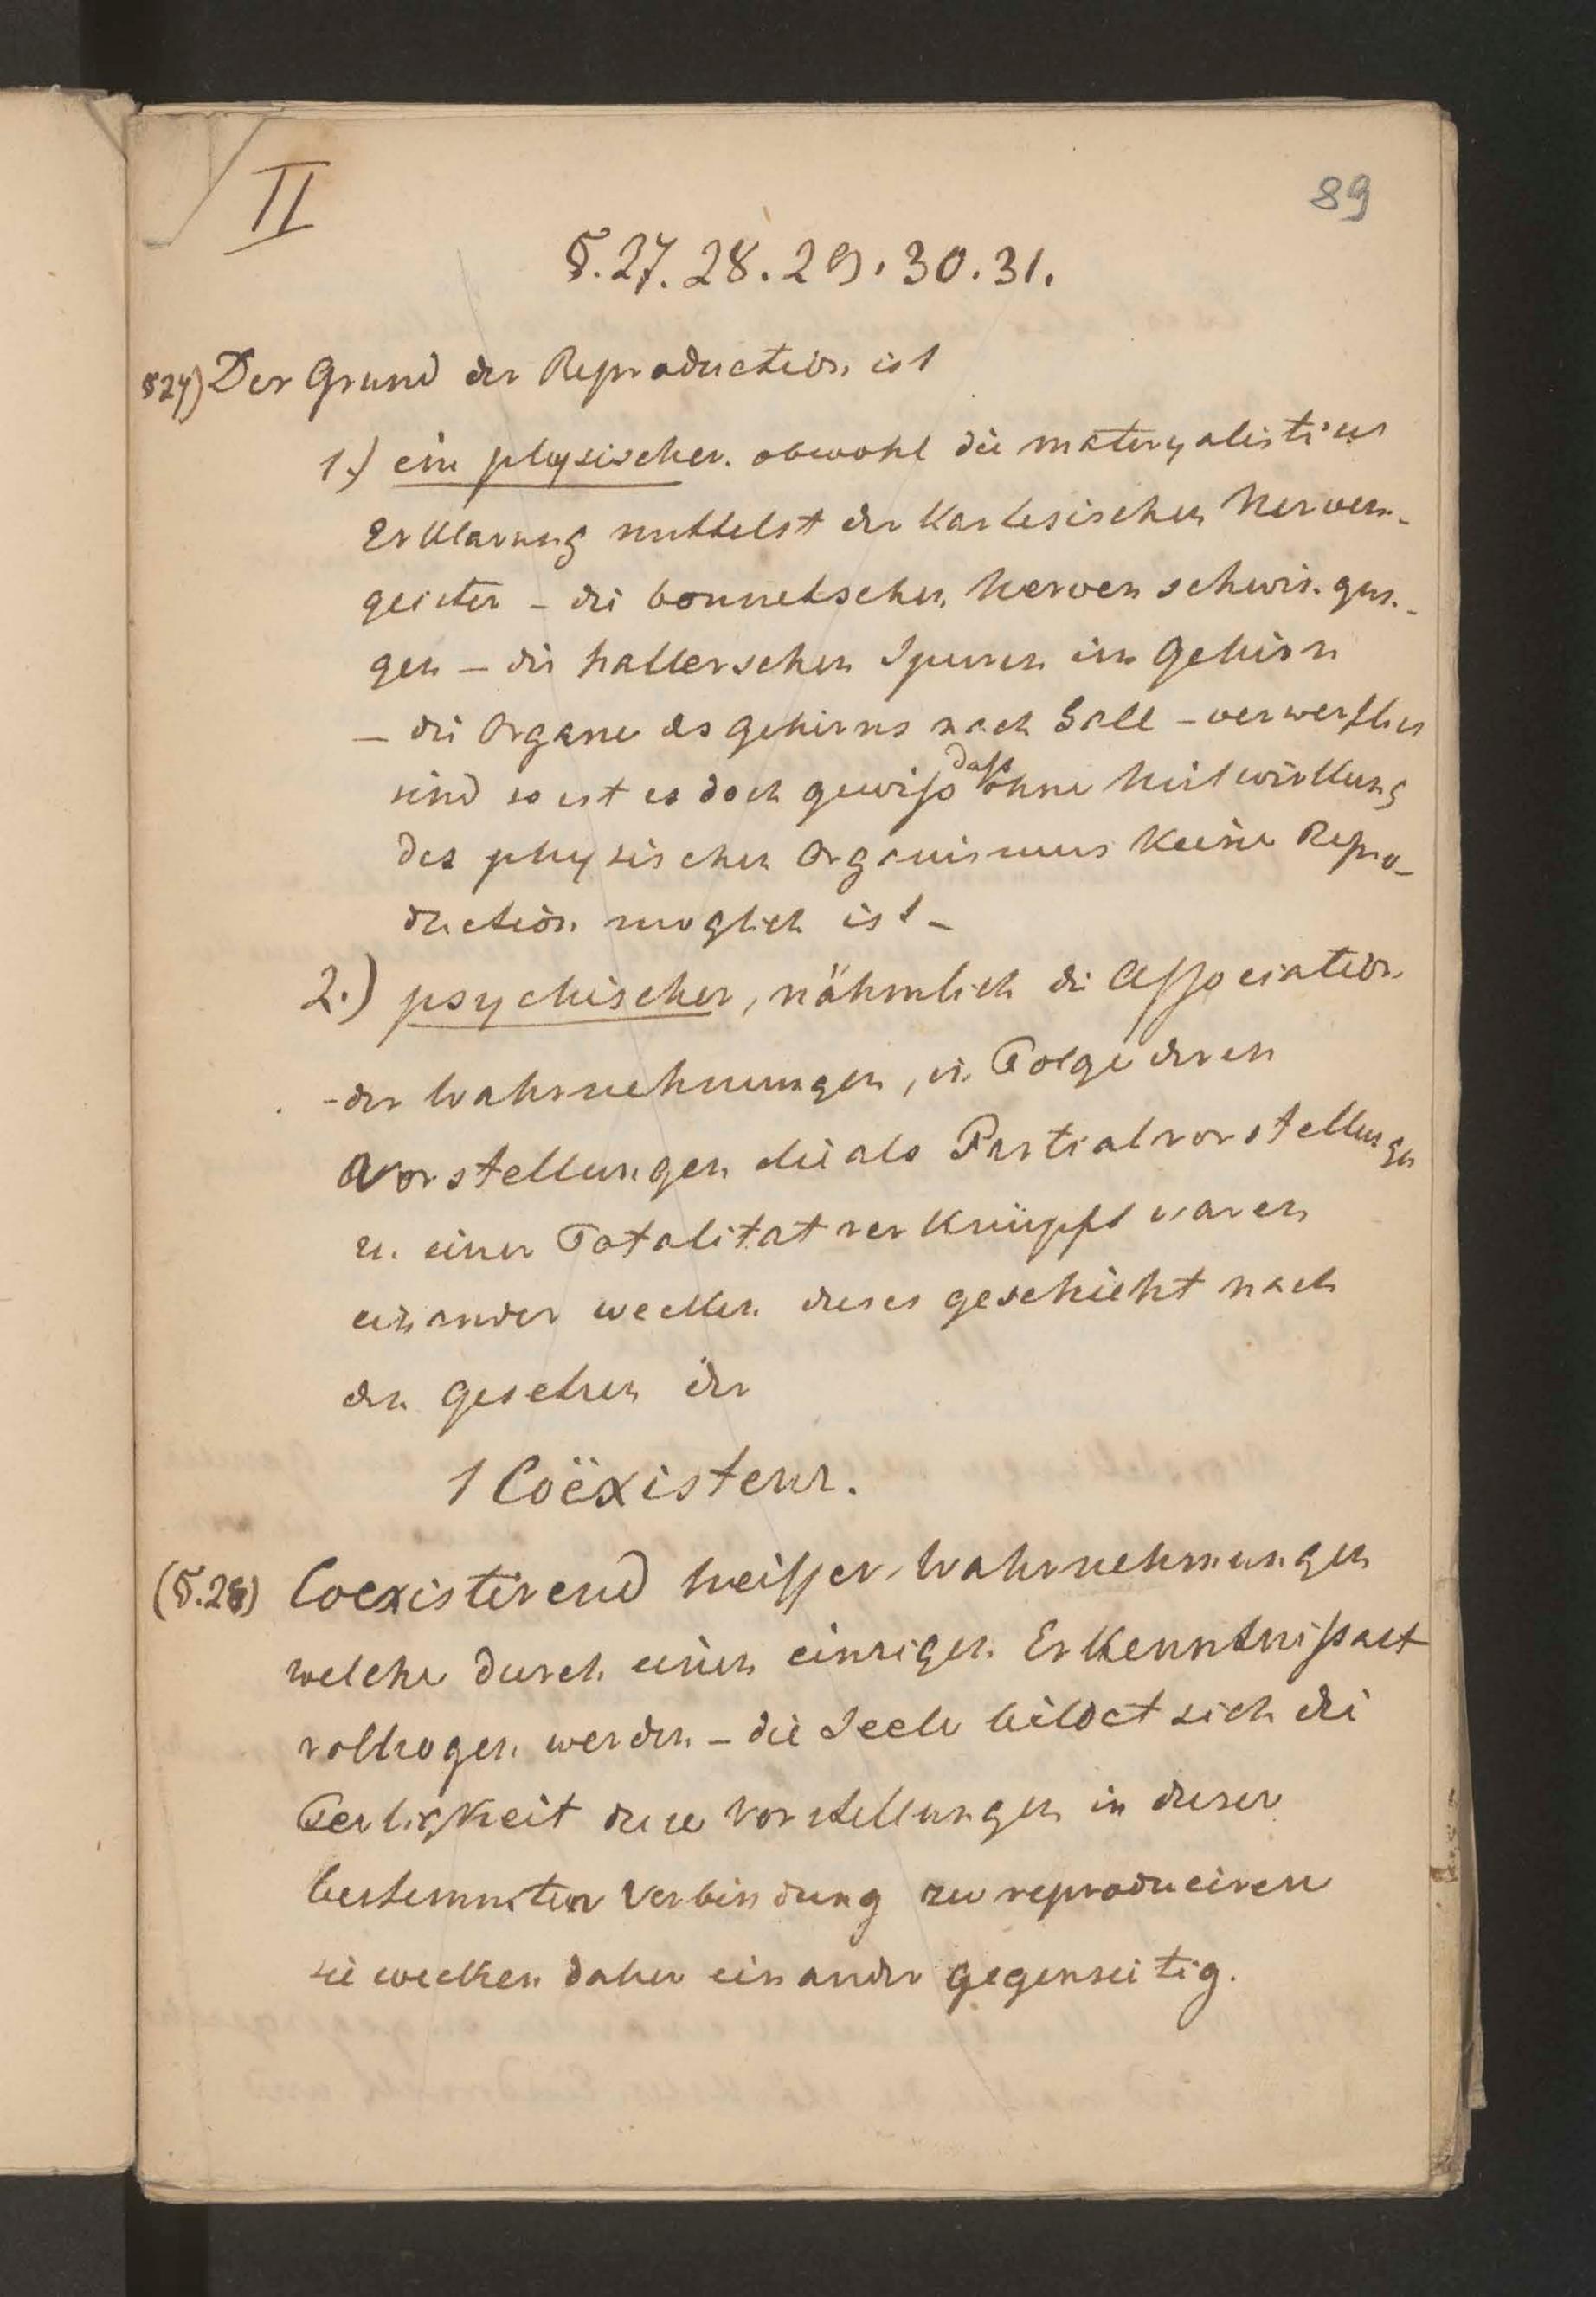 II
89
§.27.28.29.30.31.
§27) Der Grund der Reproduction ist
1.) ein physischer. obwohl die materyalistien
Erklarung mittelst der Kartesischen Nerven-
geister – die bonnetschen Nerven schwingun-
gen – die hallerschen Spuren im Gehirn
– die Organe des Gehirns nach Gall – verwerflich
dass
sind so ist es doch gewiss ohne Mitwirkung
des physischen Organismus keine Repro-
duction moglich ist –
2.) psychischer, nähmlich die Association
der Wahrnehmungen, in Folge deren
Vorstellungen die als Partialvorstellungen
zu einer Totalitat verknüpft waren
einander wecken dieses geschieht nach
den Gesetzen der
1 Coëxistenz.
(§.28) Coexistirend heissen Wahrnehmungen
welche durch einen einzigen Erkenntnissact
vollzogen werden – die Seele bildet sich die
Fertigkeit diese Vorstellungen in dieser
bestemmten Verbindung zu reproduciren
sie wecken daher einander gegenseitig.